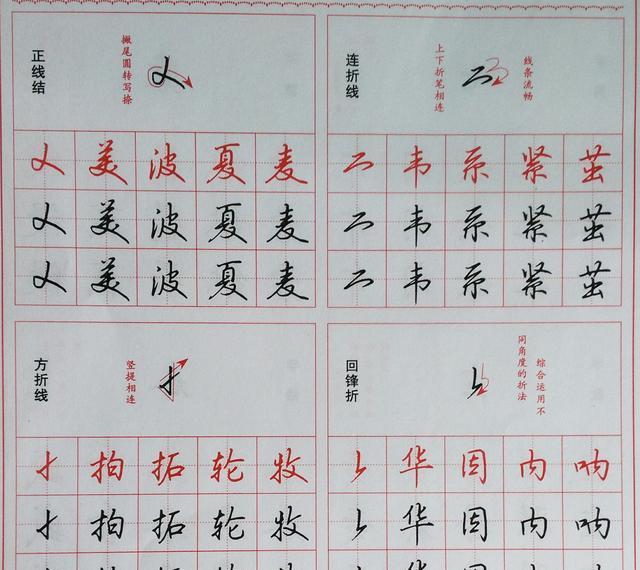 正线结
撇尾圆转写捺
美 波 夏 麦
美 波 夏 麦
美 波 夏 麦
连折线
上下折笔相连
线条流畅
韦 系 紧 茧
韦 系 紧 茧
韦 系 紧 茧
方折线
竖提相连
拍 拓 轮 牧
拍 拓 轮 牧
回锋折
综合运用不
同角度的折法
华 因 内 呐
华 因 内 呐